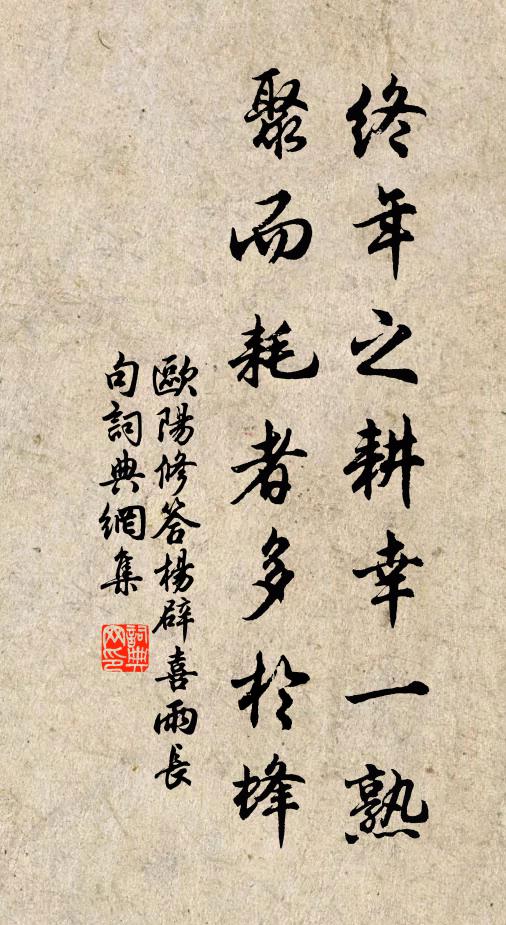 終年之耕幸一熟
聚而耗者多於蜂
歐陽修答楊辟喜雨長
句詞典網集
詞典
网印